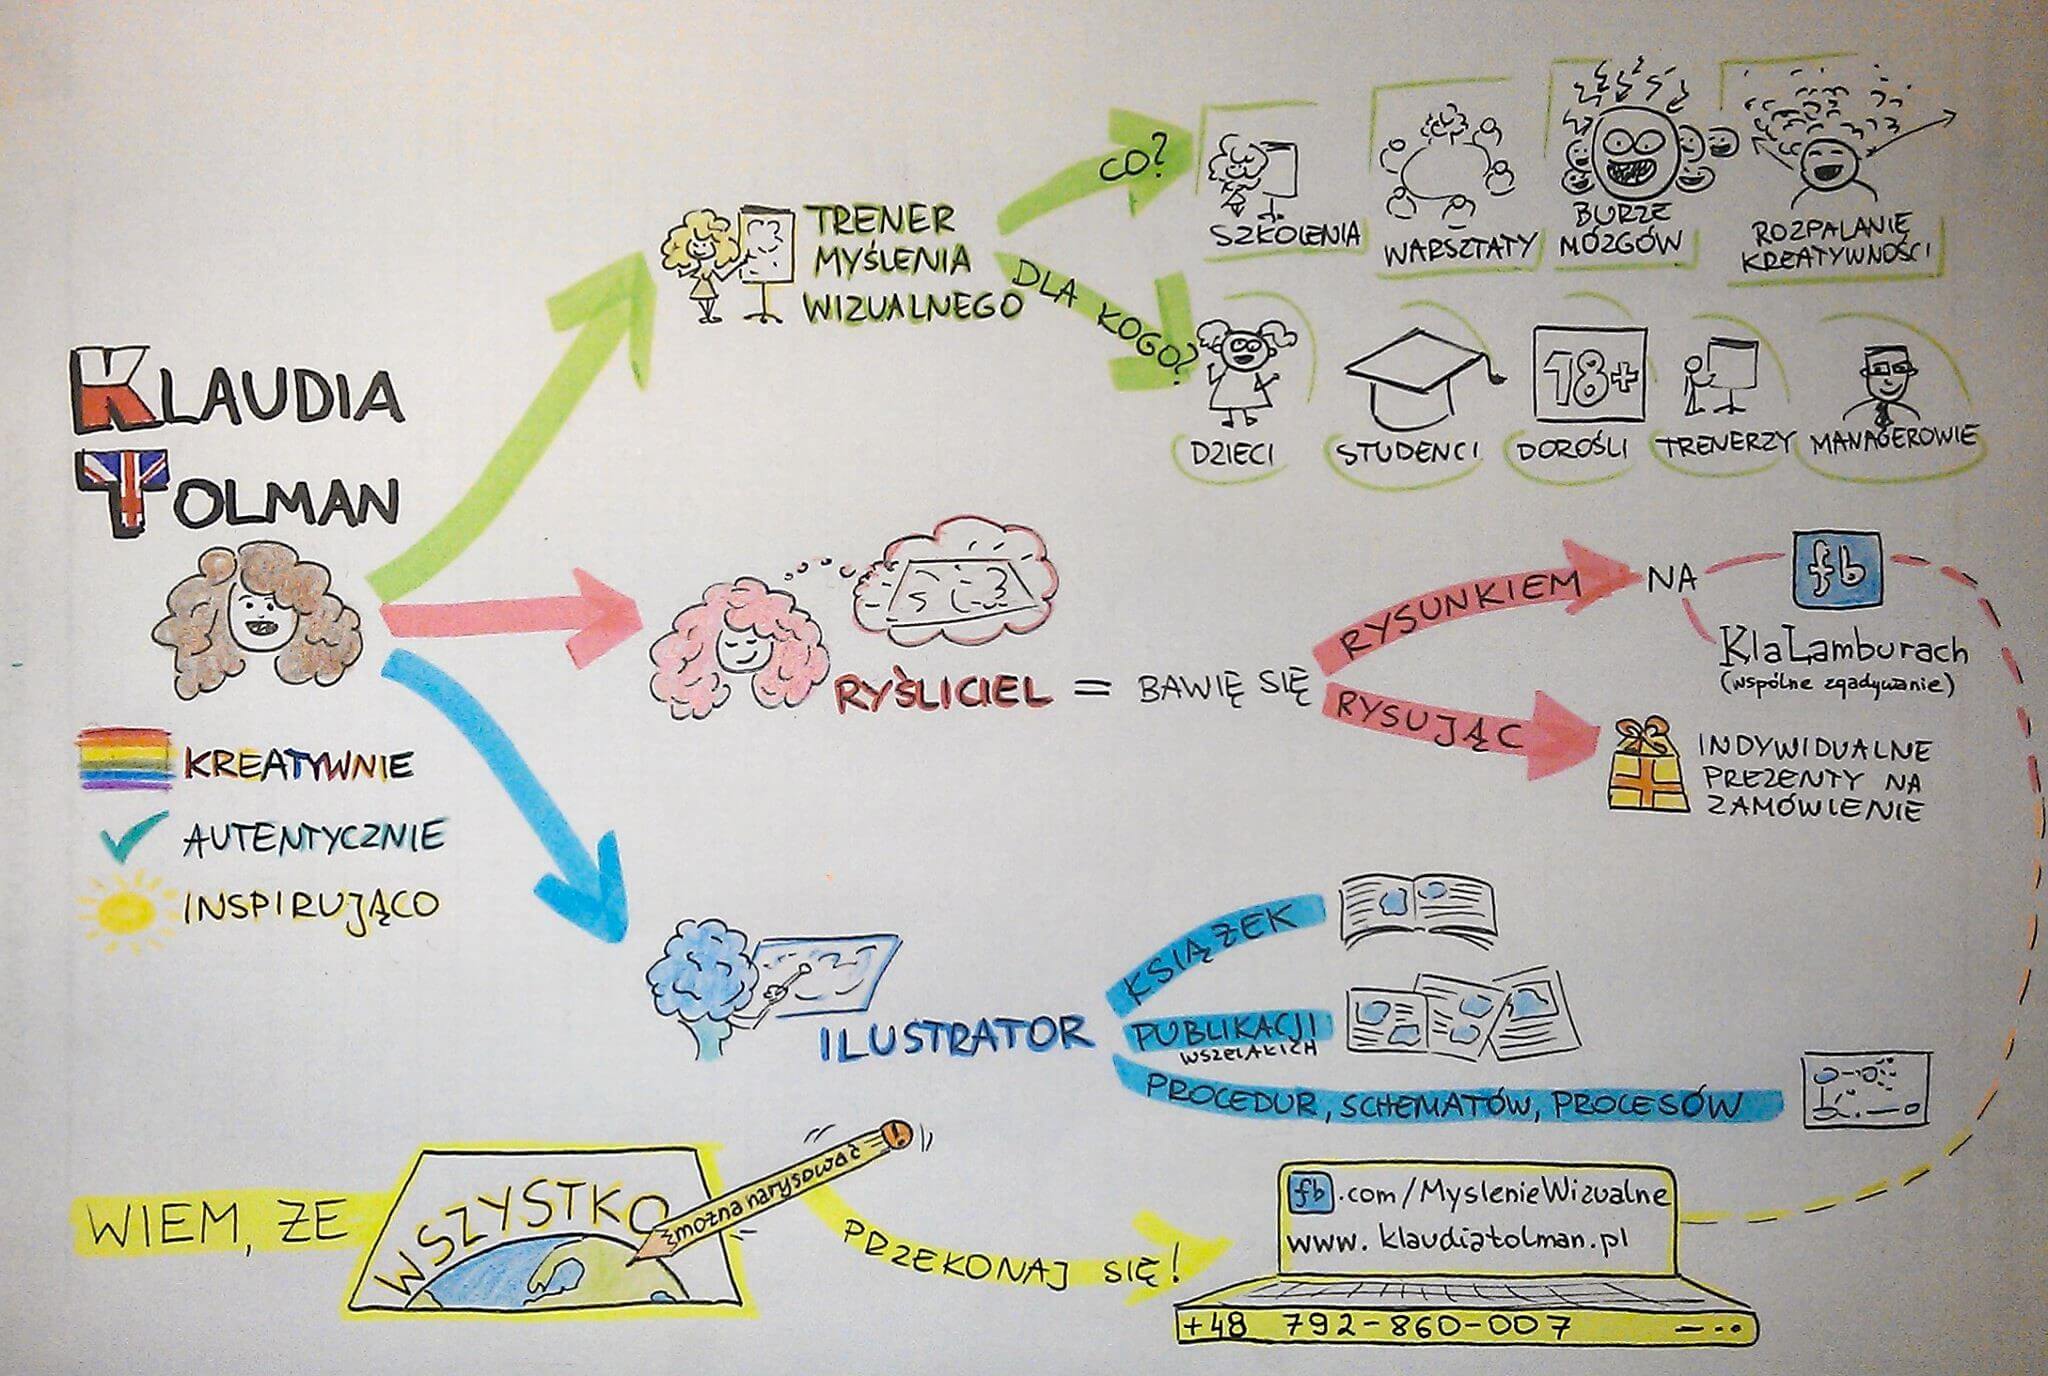 KLAUDIA
TOLMAN
KREATYWNIE
AUTENTYCZNIE
INSPIRUJĄCO
TRENER
MYŚLENIA
WIZUALNEGO
CO?
SZKOLENIA
WARSZTATY
BURZE
MÓZGÓW
ROZPALANIE
KREATYWNOŚCI
DLA KOGO?
DZIECI
STUDENCI
18+
DOROŚLI
TRENERZY
MANAGEROWIE
RYŚLICIEL = BAWIĘ SIĘ
RYSUNKIEM
NA
fb
KlaLamburach
(wspólne zgadywanie)
RYSUJĄC
INDYWIDUALNE
PREZENTY NA
ZAMÓWIENIE
ILUSTRATOR
KSIĄŻEK
PUBLIKACJI
WSZELAKICH
PROCEDUR, SCHEMATÓW, PROCESÓW
WIEM, ŻE
WSZYSTKO
można narysować
PRZEKONAJ SIĘ!
fb.com/MyslenieWizualne
www.klaudiatolman.pl
+48 792-860-007